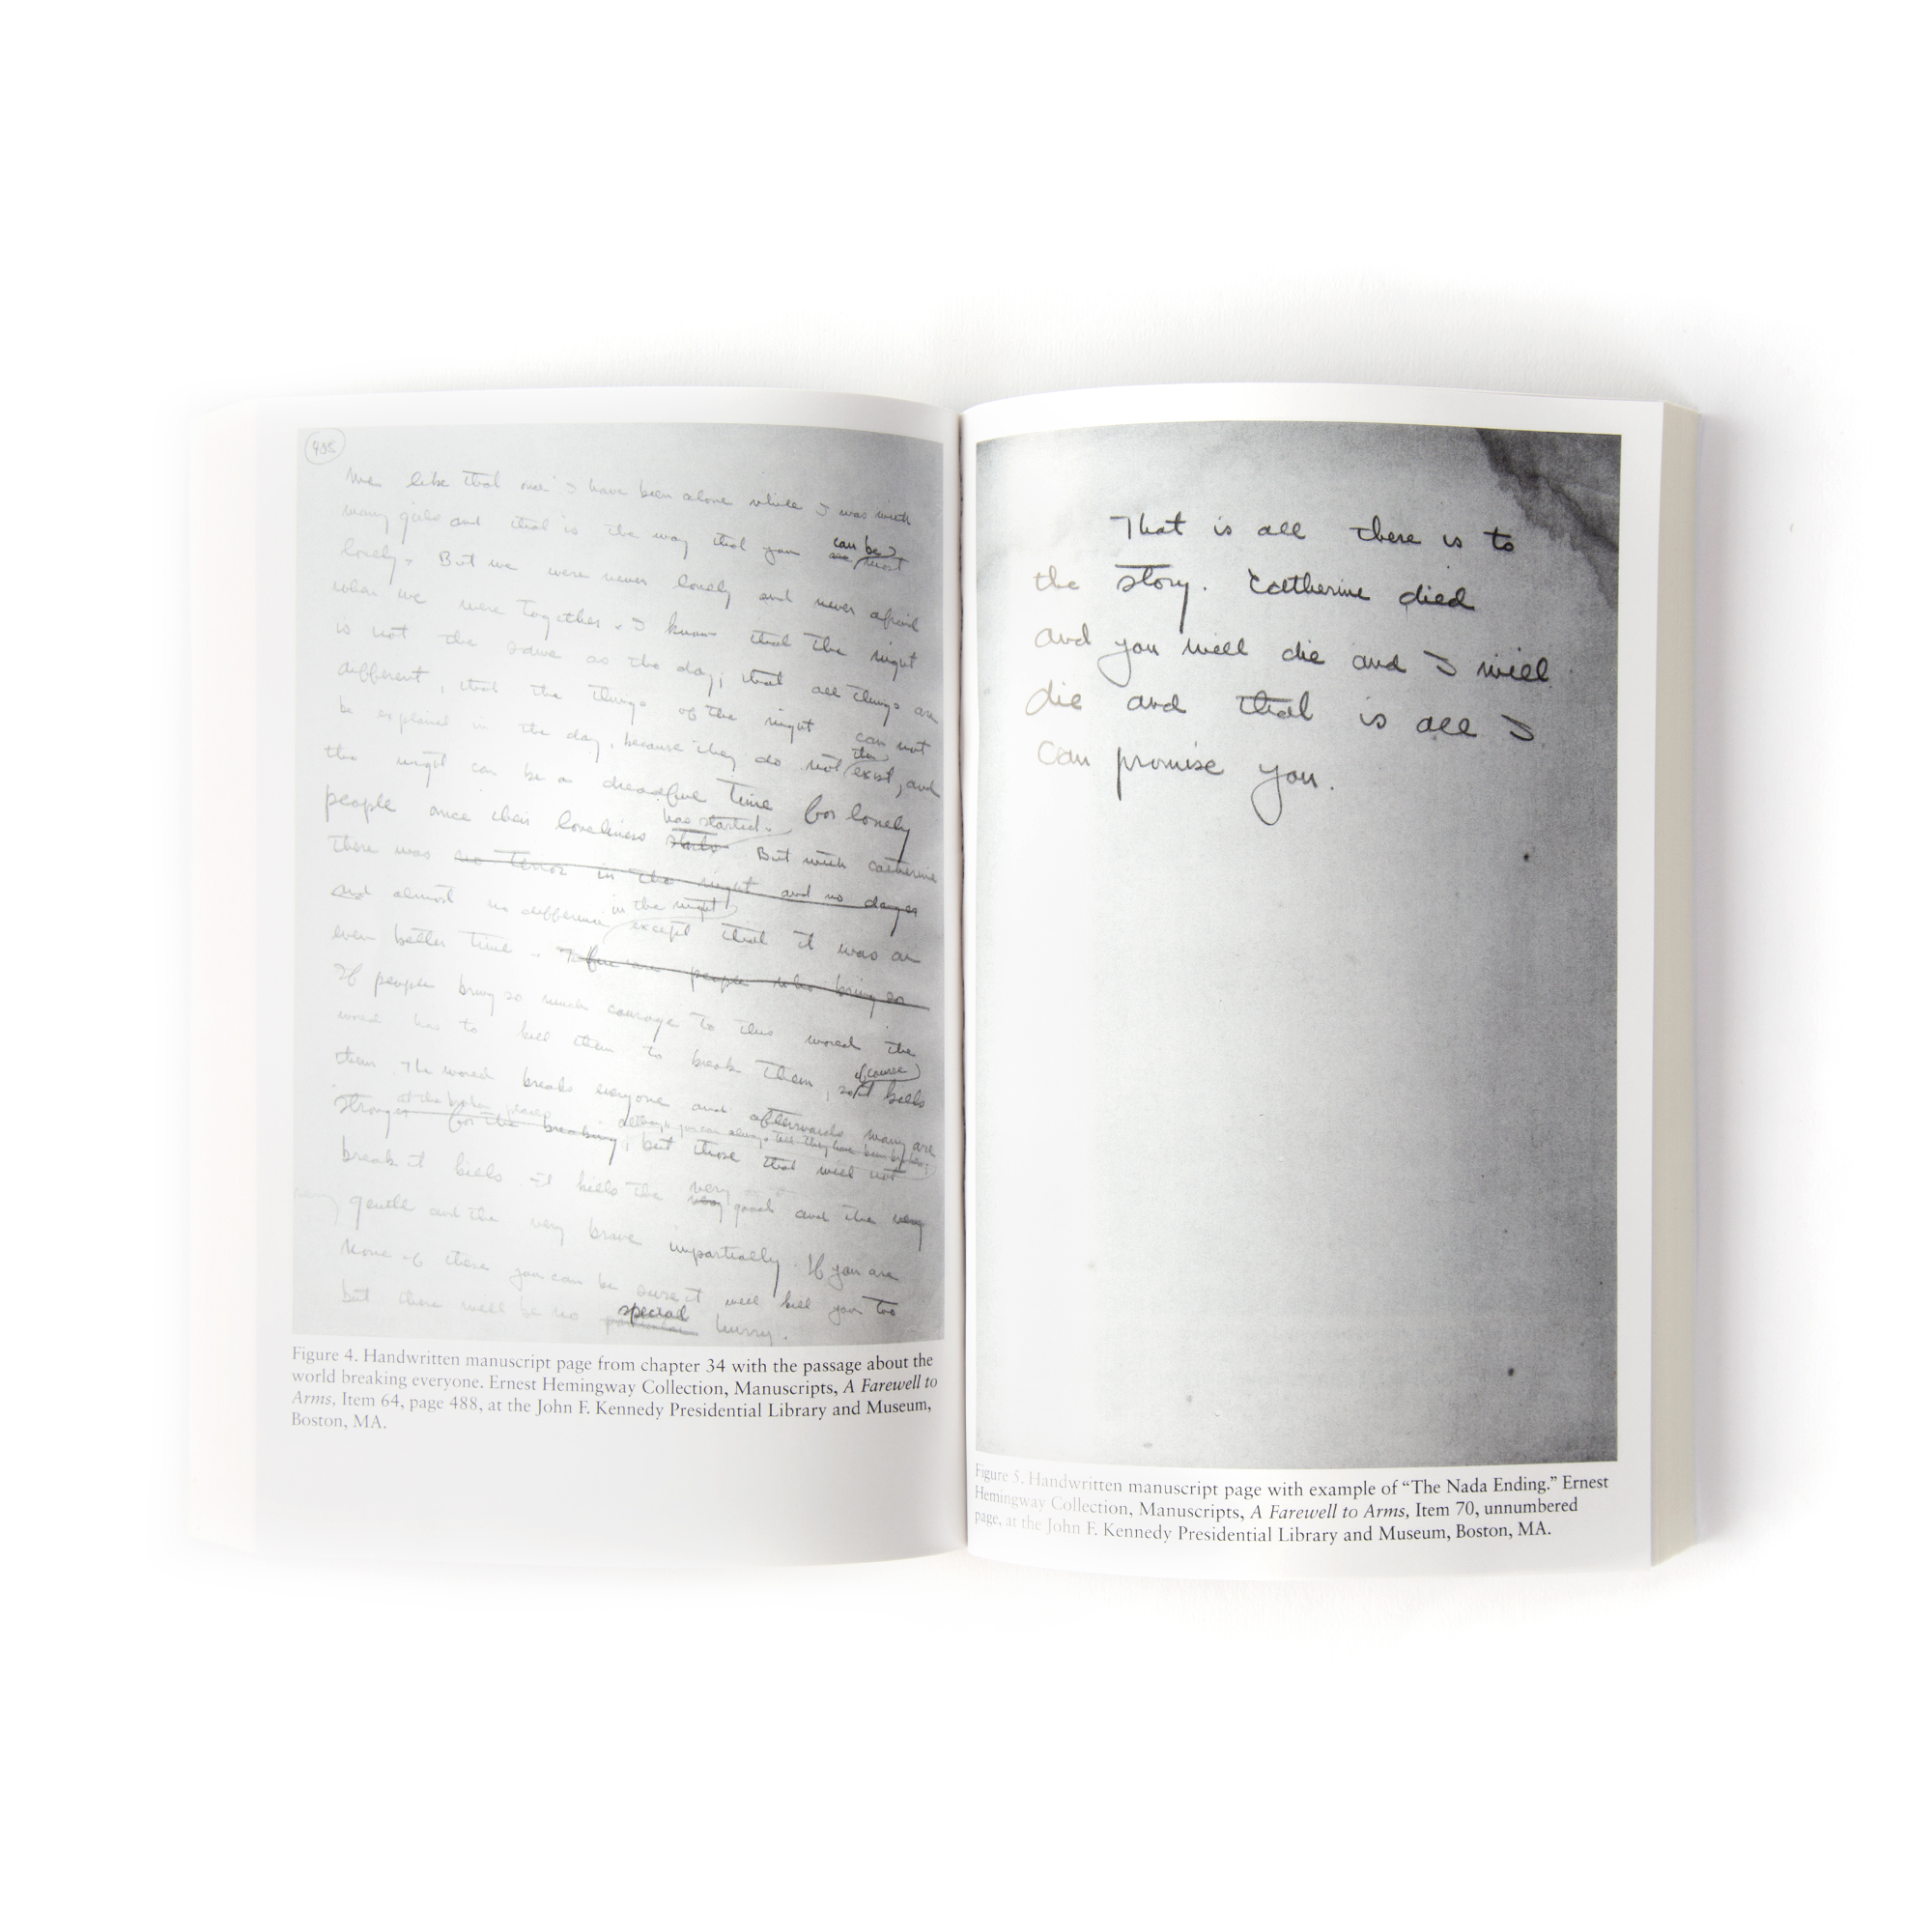 me like that once I have been alone while I was with
many girls and that is the way that you can be
are most
lonely. But we were never lonely and never afraid
when we were together. I know that the night
is not the same as the day; that all things are
different, that the things of the night can not
be explained in the day, because they do not then exist, and
the night can be a dreadful time for lonely
people once their loneliness has started.
starts But with Catherine
there was no terror in the night and no danger
and almost no difference in the night except that it was an
even better time. few are people who bring so
If people bring so much courage to this world the
world has to kill them to break them, so of course it kills
them. The world breaks everyone and afterwards many are
at the broken places
stronger for the breaking; but those that will not
break it kills. It kills the very
very good and the very
gentle and the very brave impartially. If you are
none of these you can be sure it will kill you too
but there will be no special
particular hurry.
Figure 4. Handwritten manuscript page from chapter 34 with the passage about the
world breaking everyone. Ernest Hemingway Collection, Manuscripts, A Farewell to
Arms, Item 64, page 488, at the John F. Kennedy Presidential Library and Museum,
Boston, MA.
That is all there is to
the story. Catherine died
and you will die and I will
die and that is all I
can promise you.
Figure 5. Handwritten manuscript page with example of “The Nada Ending.” Ernest
Hemingway Collection, Manuscripts, A Farewell to Arms, Item 70, unnumbered
page, at the John F. Kennedy Presidential Library and Museum, Boston, MA.